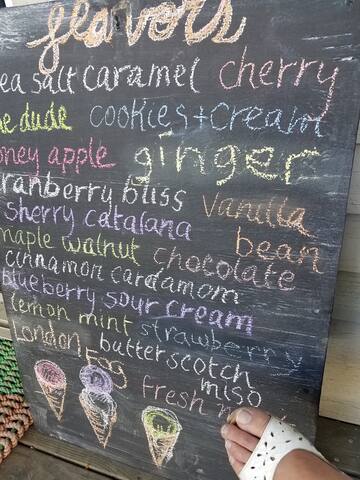 flavors
ea salt caramel cherry
e dude cookies + cream
oney apple ginger
ranberry bliss vanilla
sherry catalana bean
maple walnut chocolate
cinnamon cardamom
blueberry sour cream
lemon mint strawberry
London Fog butterscotch
miso
fresh